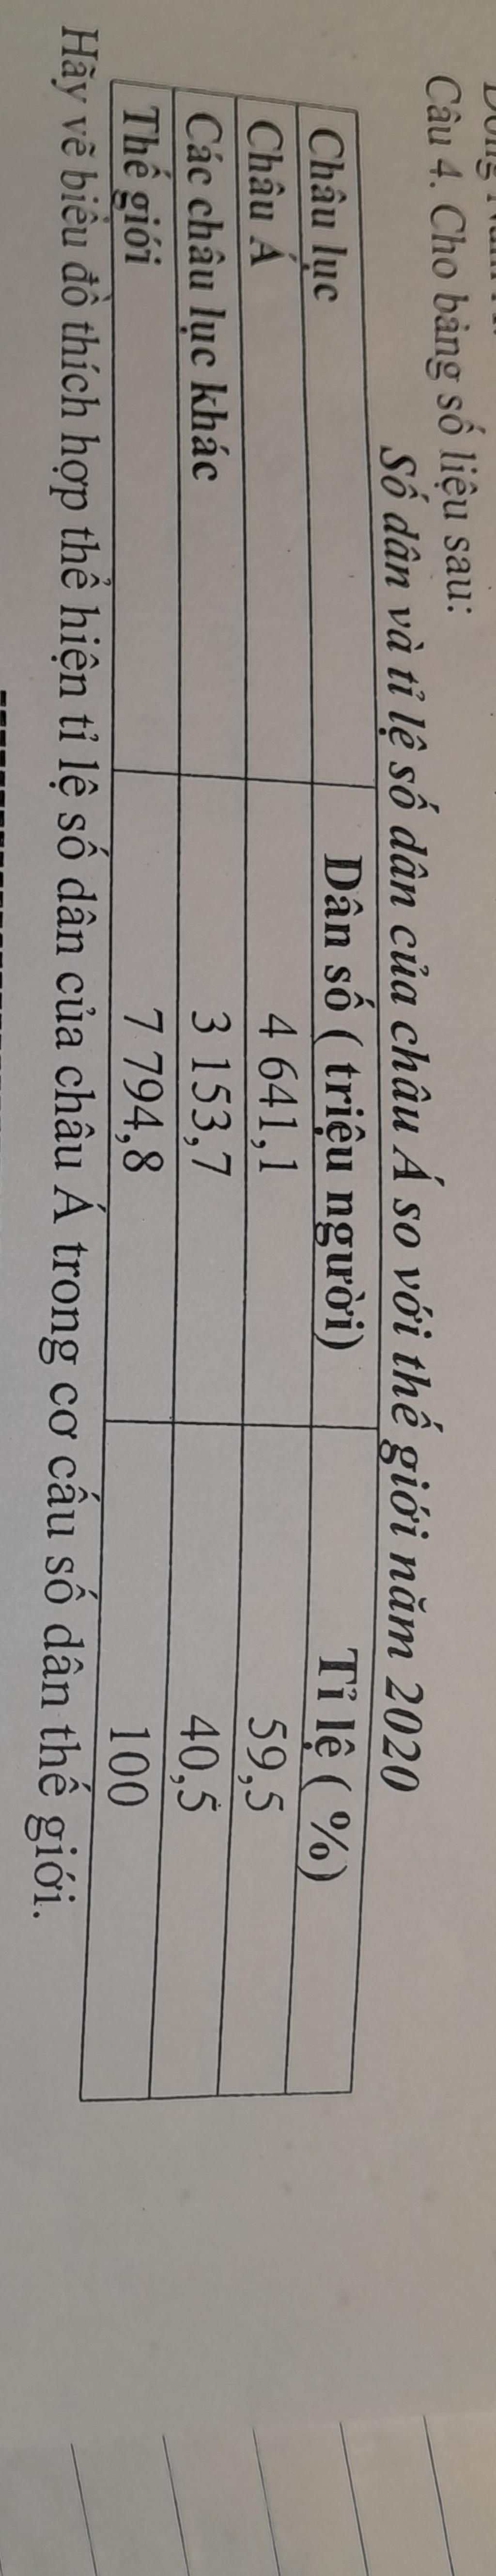 Câu 4. Cho bảng số liệu sau:
Số dân và tỉ lệ số dân của châu Á so với thế giới năm 2020
Châu lục Dân số ( triệu người) Tỉ lệ ( %)
Châu Á 4 641,1 59,5
Các châu lục khác 3 153,7 40,5
Thế giới 7 794,8 100
Hãy vẽ biểu đồ thích hợp thể hiện tỉ lệ số dân của châu Á trong cơ cấu số dân thế giới.